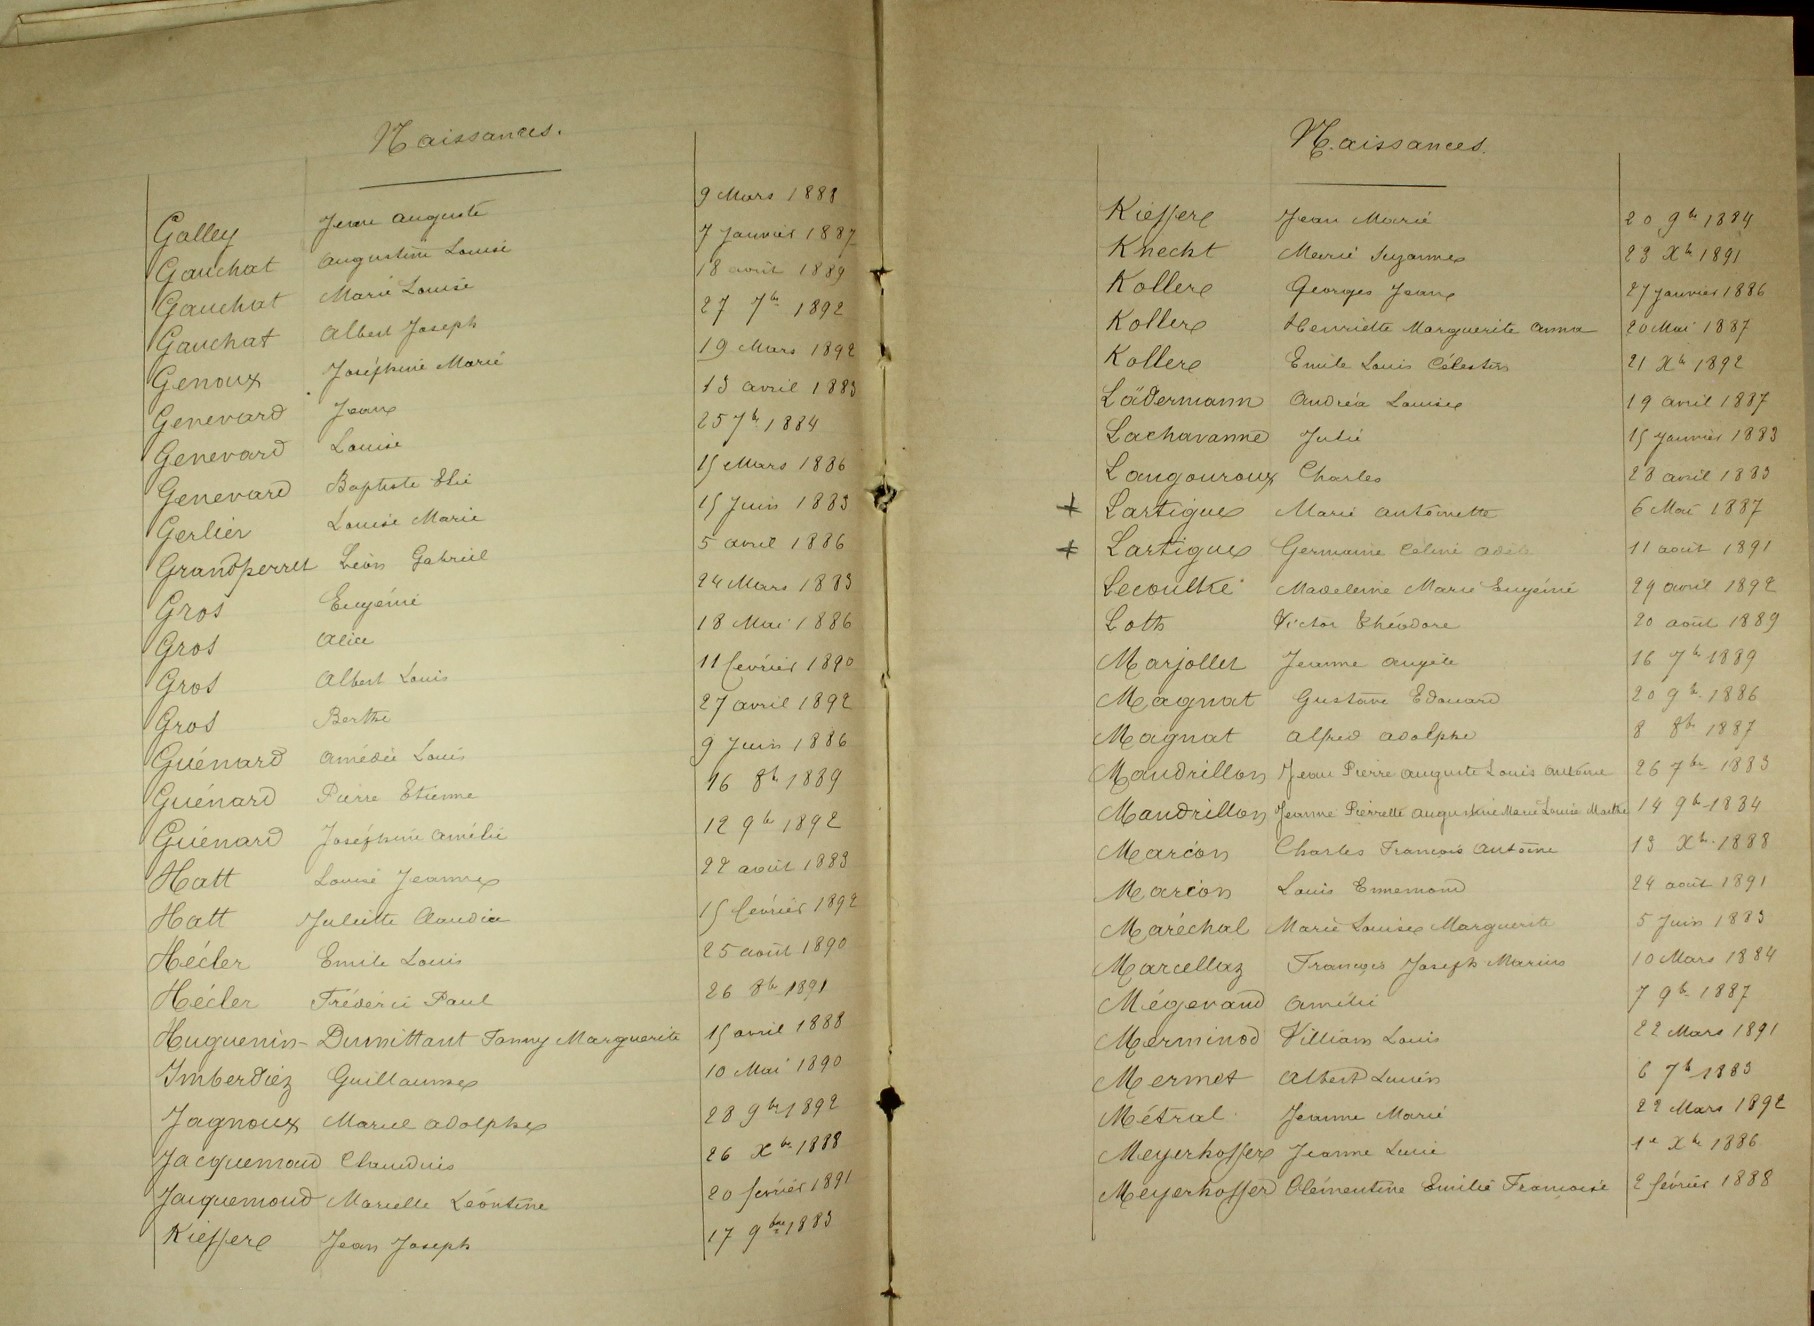 Naissances.
Galley Jean Auguste 9 Mars 1888
Gauchat Augustine Louise 7 Janvier 1887
Gauchat Marie Louise 18 avril 1889
Gauchat Albert Joseph 27 7bre 1892
Genoux Joséphine Marie 19 Mars 1892
Genevard Jean 13 avril 1883
Genevard Louise 25 7bre 1884
Genevard Baptiste Elie 15 Mars 1886
Gerlier Louise Marie 15 Juin 1883
Grandperret Léon Gabriel 5 avril 1886
Gros Eugénie 24 Mars 1883
Gros Alice 18 Mai 1886
Gros Albert Louis 11 février 1890
Gros Berthe 27 avril 1892
Guénard Amédée Louis 9 Juin 1886
Guénard Pierre Etienne 16 8bre 1889
Guénard Joséphine Amélie 12 9bre 1892
Hatt Louise Jeanne 22 août 1883
Hatt Juliette Claudia 15 février 1892
Hécler Emile Louis 25 août 1890
Hécler Frédéric Paul 26 8bre 1891
Huguenin-Dumittant Fanny Marguerite 15 avril 1888
Imberdiez Guillaume 10 Mai 1890
Jagnoux Marcel Adolphe 28 9bre 1892
Jacquemoud Claudius 26 Xbre 1888
Jacquemoud Marcelle Léontine 20 février 1891
Kieffer Jean Joseph 17 9bre 1883
Naissances.
Kieffer Jean Marie 20 9bre 1884
Knecht Marie Suzanne 23 Xbre 1891
Koller Georges Jean 27 Janvier 1886
Koller Henriette Marguerite Anna 20 Mai 1887
Koller Emile Louis Célestin 21 Xbre 1892
Lädermann Andréa Louise 19 avril 1887
Lachavanne Julie 15 Janvier 1883
Langouroux Charles 28 avril 1883
+ Lartigue Marie Antoinette 6 Mai 1887
+ Lartigue Germaine Céline Adèle 11 août 1891
Lecoultre Madeleine Marie Eugénie 29 avril 1892
Loth Victor Théodore 20 août 1889
Marjollet Jeanne Angèle 16 7bre 1889
Magnat Gustave Edouard 20 9bre 1886
Magnat Alfred Adolphe 8 8bre 1887
Mandrillon Jean Pierre Auguste Louis Antoine 26 7bre 1883
Mandrillon Jeanne Pierrette Augustine Marie Louise Marthe 14 9bre 1884
Marcon Charles François Antoine 13 Xbre 1888
Marcon Louis Ennemond 24 août 1891
Maréchal Marie Louise Marguerite 5 Juin 1883
Marcellaz François Joseph Marius 10 Mars 1884
Mégevand Amélie 7 9bre 1887
Merminod William Louis 22 Mars 1891
Mermet Albert Lucien 6 7bre 1883
Métral Jeanne Marie 22 Mars 1892
Meyerhoffer Jeanne Lucie 1er Xbre 1886
Meyerhoffer Clémentine Emilie Françoise 2 février 1888